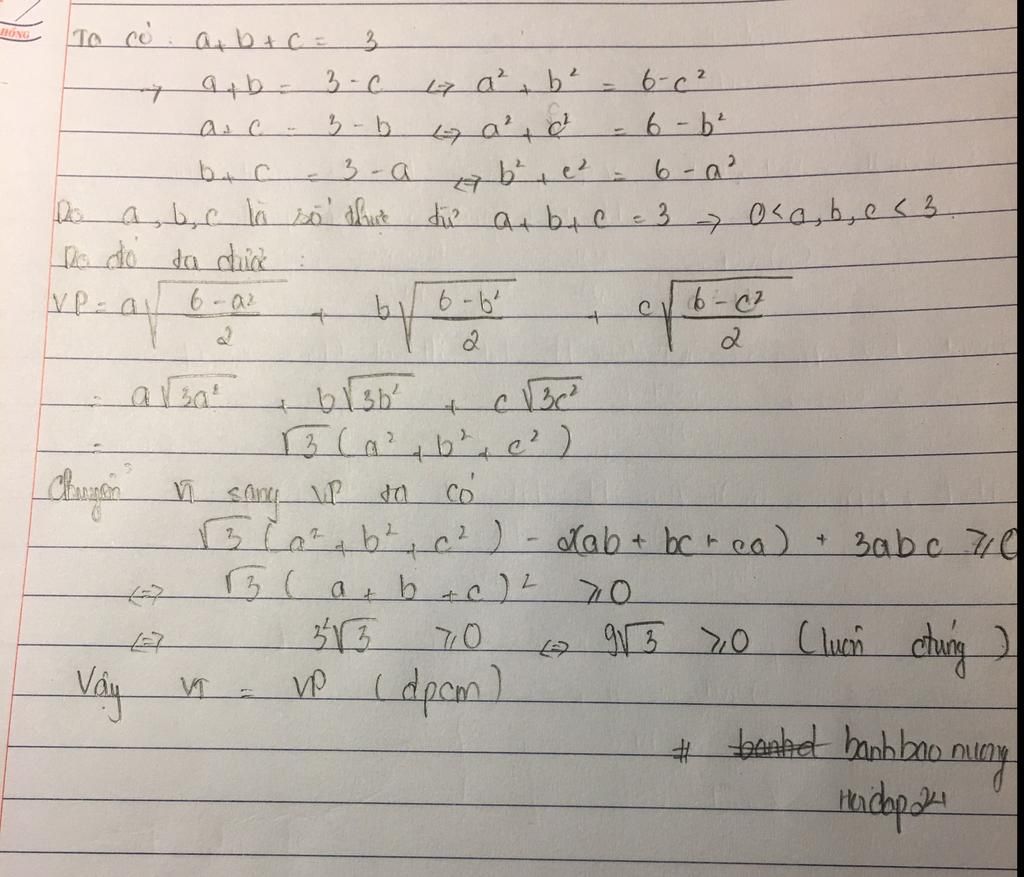 HỒNG
Ta có: a + b + c = 3
→ a + b = 3 - c ⇔ a² + b² = 6 - c²
a + c = 3 - b ⇔ a² + c² = 6 - b²
b + c = 3 - a ⇔ b² + c² = 6 - a²
Do a, b, c là số thực từ a + b + c = 3 → 0 < a, b, c < 3
Do đó ta được :
VP = a√((6 - a²)/2) + b√((6 - b²)/2) + c√((6 - c²)/2)
= a√(3a²) + b√(3b²) + c√(3c²)
= √3 (a² + b² + c²)
Chuyển VT sang VP ta có
√3 (a² + b² + c²) - 2(ab + bc + ca) + 3abc ≥ 0
⇔ √3 (a + b + c)² ≥ 0
⇔ 3²√3 ≥ 0 ⇔ 9√3 ≥ 0 (luôn đúng)
Vậy VT = VP (đpcm)
# banhbaonuong
Hoidap24